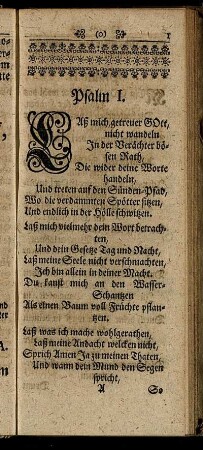 (o) 1
Psalm I.
Laß mich getreuer GOtt,
nicht wandeln
In der Verächter bö-
sen Rath,
Die wider deine Worte
handeln,
Und treten auf den Sünden-Pfad,
Wo die verdammten Spötter sitzen,
Und endlich in der Hölle schwitzen.
Laß mich vielmehr dein Wort betrach-
ten,
Und dein Gesetze Tag und Nacht,
Laß meine Seele nicht verschmachten,
Ich bin allein in deiner Macht.
Du kanst mich an den Wasser-
Schantzen
Als einen Baum voll Früchte pflan-
tzen.
Laß was ich mache wohlgerathen,
Laß meine Andacht welcken nicht,
Sprich Amen Ja zu meinen Thaten,
Und wann dein Mund den Segen
spricht,
A So